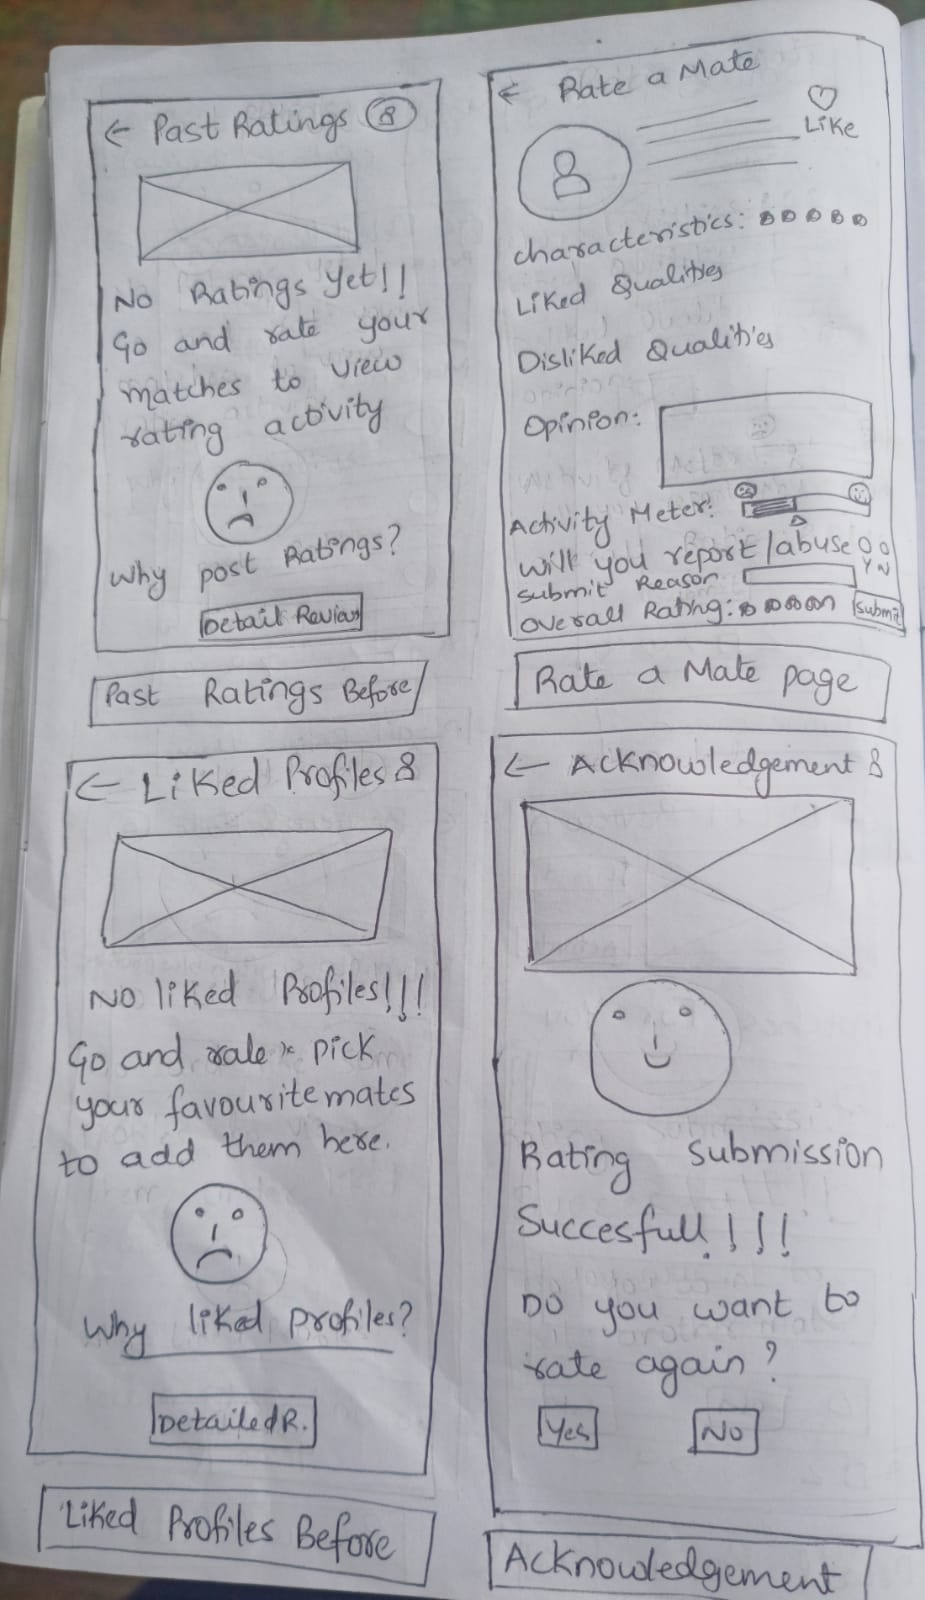 ← Past Ratings
No Ratings Yet!!
Go and rate your
matches to view
rating activity
Why post Ratings?
Detail Review
Past Ratings Before
← Rate a Mate
Like
characteristics:
Liked Qualities
Disliked Qualities
Opinion:
Activity Meter:
will you report/abuse
Y N
submit Reason
Overall Rating:
Submit
Rate a Mate page
← Liked Profiles
No liked Profiles!!!
Go and rate & pick
your favourite mates
to add them here.
Why liked profiles?
Detailed R.
Liked Profiles Before
← Acknowledgement
Rating submission
Succesfull!!!!
Do you want to
rate again?
Yes
No
Acknowledgement